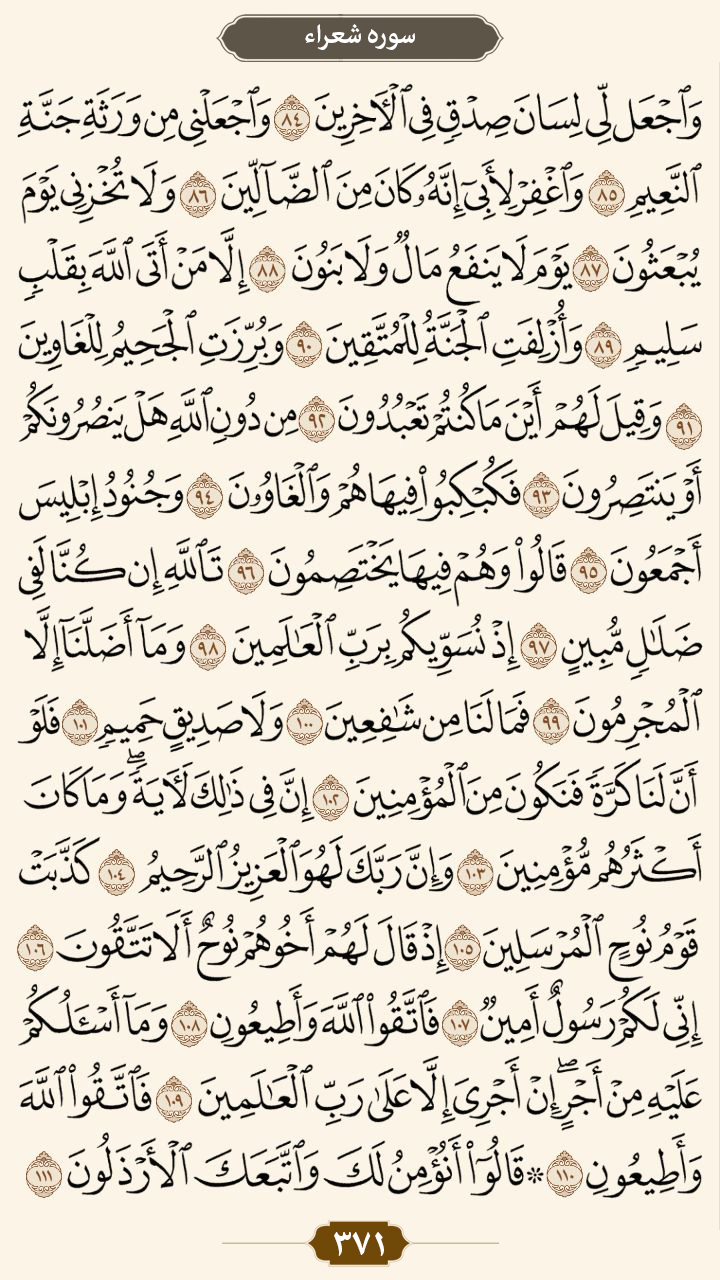 سوره شعراء
وَٱجۡعَل لِّي لِسَانَ صِدۡقٖ فِي ٱلۡأٓخِرِينَ ٨٤ وَٱجۡعَلۡنِي مِن وَرَثَةِ جَنَّةِ
ٱلنَّعِيمِ ٨٥ وَٱغۡفِرۡ لِأَبِيٓ إِنَّهُۥ كَانَ مِنَ ٱلضَّآلِّينَ ٨٦ وَلَا تُخۡزِنِي يَوۡمَ
يُبۡعَثُونَ ٨٧ يَوۡمَ لَا يَنفَعُ مَالٞ وَلَا بَنُونَ ٨٨ إِلَّا مَنۡ أَتَى ٱللَّهَ بِقَلۡبٖ
سَلِيمٖ ٨٩ وَأُزۡلِفَتِ ٱلۡجَنَّةُ لِلۡمُتَّقِينَ ٩٠ وَبُرِّزَتِ ٱلۡجَحِيمُ لِلۡغَاوِينَ
٩١ وَقِيلَ لَهُمۡ أَيۡنَ مَا كُنتُمۡ تَعۡبُدُونَ ٩٢ مِن دُونِ ٱللَّهِ هَلۡ يَنصُرُونَكُمۡ
أَوۡ يَنتَصِرُونَ ٩٣ فَكُبۡكِبُواْ فِيهَا هُمۡ وَٱلۡغَاوُۥنَ ٩٤ وَجُنُودُ إِبۡلِيسَ
أَجۡمَعُونَ ٩٥ قَالُواْ وَهُمۡ فِيهَا يَخۡتَصِمُونَ ٩٦ تَٱللَّهِ إِن كُنَّا لَفِي
ضَلَٰلٖ مُّبِينٍ ٩٧ إِذۡ نُسَوِّيكُم بِرَبِّ ٱلۡعَٰلَمِينَ ٩٨ وَمَآ أَضَلَّنَآ إِلَّا
ٱلۡمُجۡرِمُونَ ٩٩ فَمَا لَنَا مِن شَٰفِعِينَ ١٠٠ وَلَا صَدِيقٍ حَمِيمٖ ١٠١ فَلَوۡ
أَنَّ لَنَا كَرَّةٗ فَنَكُونَ مِنَ ٱلۡمُؤۡمِنِينَ ١٠٢ إِنَّ فِي ذَٰلِكَ لَأٓيَةٗۖ وَمَا كَانَ
أَكۡثَرُهُم مُّؤۡمِنِينَ ١٠٣ وَإِنَّ رَبَّكَ لَهُوَ ٱلۡعَزِيزُ ٱلرَّحِيمُ ١٠٤ كَذَّبَتۡ
قَوۡمُ نُوحٍ ٱلۡمُرۡسَلِينَ ١٠٥ إِذۡ قَالَ لَهُمۡ أَخُوهُمۡ نُوحٌ أَلَا تَتَّقُونَ ١٠٦
إِنِّي لَكُمۡ رَسُولٌ أَمِينٞ ١٠٧ فَٱتَّقُواْ ٱللَّهَ وَأَطِيعُونِ ١٠٨ وَمَآ أَسۡـَٔلُكُمۡ
عَلَيۡهِ مِنۡ أَجۡرٍۖ إِنۡ أَجۡرِيَ إِلَّا عَلَىٰ رَبِّ ٱلۡعَٰلَمِينَ ١٠٩ فَٱتَّقُواْ ٱللَّهَ
وَأَطِيعُونِ ١١٠ ۞ قَالُوٓاْ أَنُؤۡمِنُ لَكَ وَٱتَّبَعَكَ ٱلۡأَرۡذَلُونَ ١١١
٣٧١